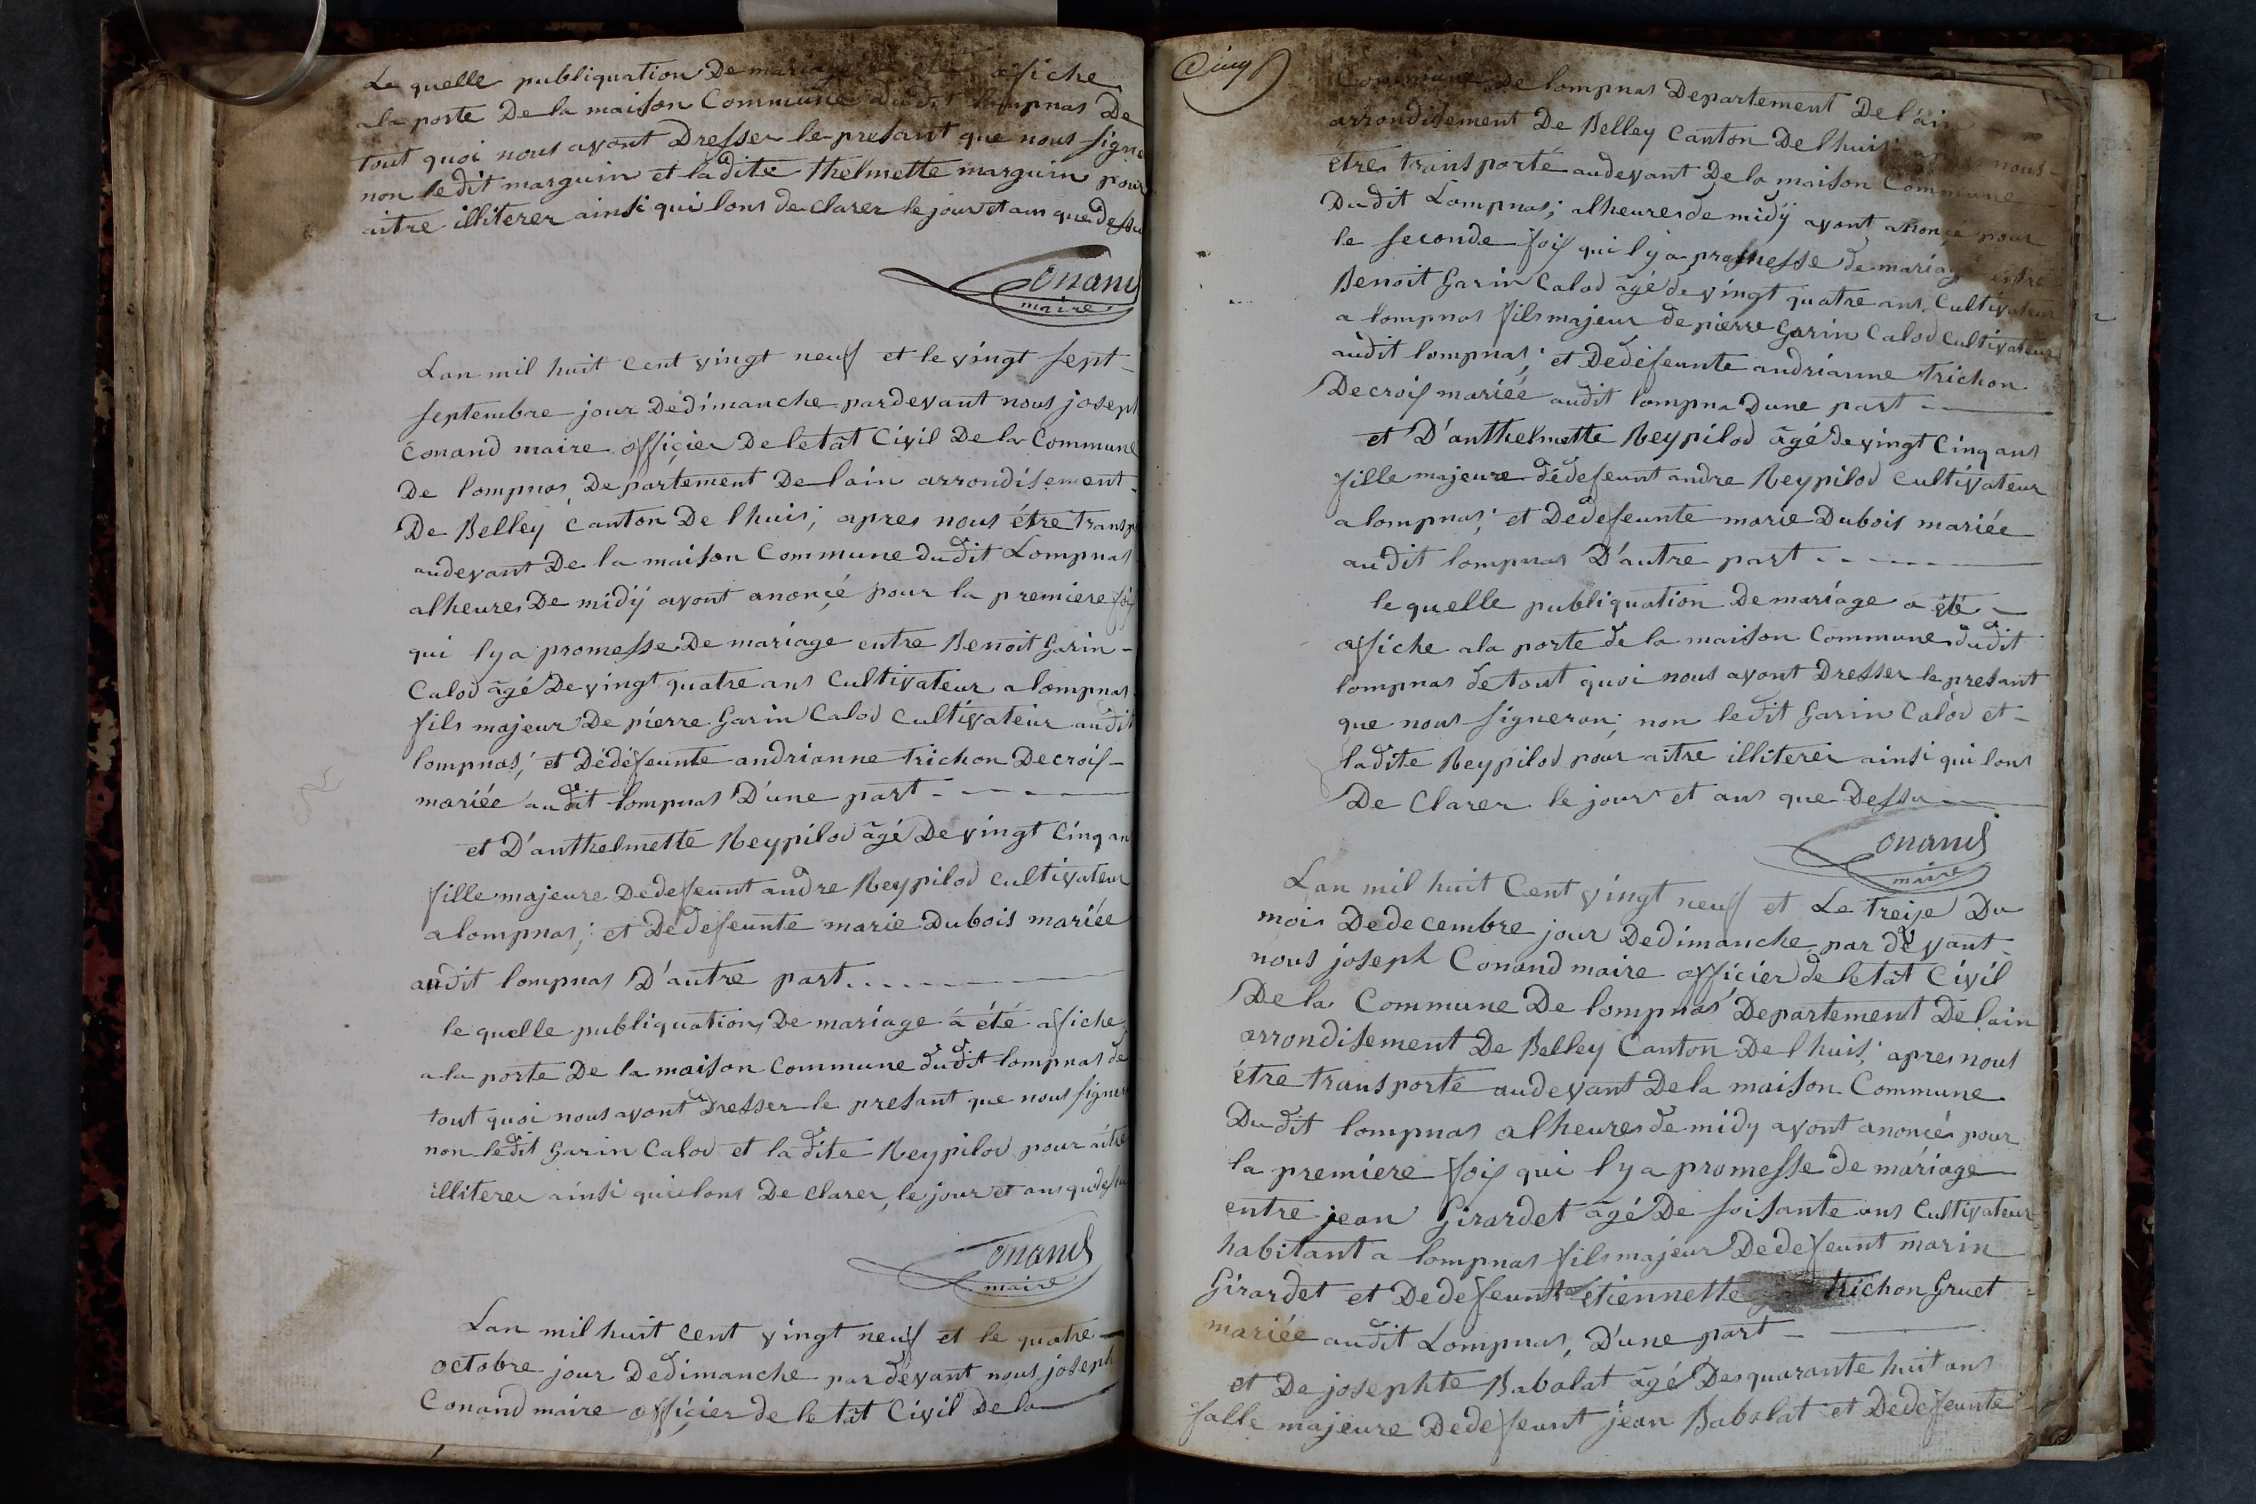 Le quelle publiquation De mariage a été afiche
a la porte De la maison Commune dudit lompnas De
tout quoi nous avont Dresser le presant que nous signe
non ledit marguin et ladite thelmette marguin pour
aitre illiterer ainsi qui lons declarer le jour et ans que dessu
Conand
maire
Lan mil huit Cent vingt neuf et le vingt sept
septembre jour Dedimanche pardevant nous joseph
Conand maire officier De letat Civil De la Commune
De lompnas Departement De lain arrondisement
De Belley Canton De lhuis; apres nous étre transp
audevant De la maison Commune dudit Lompnas
alheures De midÿ avont anonçé pour la premiere foix
qui lya promesse De mariage entre Benoit Garin
Calod âgé De vingt quatre ans Cultivateur a lompnas
fils majeur De pierre Garin Calod Cultivateur audit
lompnas; et Dedefeunte andrianne trichon Decroix
mariée audit lompnas D'une part
et D'anthelmette Reypilod âgé De vingt Cinq an
fille majeure Dedefeunt andre Reypilod Cultivateur
a lompnas; et Dedefeunte marie Dubois mariée
audit lompnas D'autre part
le quelle publiquation De mariage à été afiche
a la porte De la maison Commune dudit lompnas de
tout quoi nous avont Dresser le presant que nous signer
non ledit Garin Calod et la dite Reypilod pour aitre
illiterer ainsi qui lons De clarer, le jour et ans que dessu
Conand
maire
Lan mil huit Cent vingt neuf et le quatre
octobre jour Dedimanche par devant nous joseph
Conand maire officier de letat Civil De la
Cinq
Commune De lompnas Departement De lain
arrondisement De Belley Canton De lhuis apres nous
etre transporté audevant De la maison Commune
Dudit Lompnas; alheures de midÿ avont anonçe pour
le seconde foix qui lya promesse de mariage entre
Benoit Garin Calod âgé de vingt quatre ans Cultivateur
a lompnas fils majeur de pierre Garin Calod Cultivateur
audit lompnas; et Dedefeunte andrianne trichon
Decroix mariée audit lompna Dune part
et D'anthelmette Reypilod âgé de vingt Cinq ans
fille majeure dedefeunt andre Reypilod Cultivateur
a lompnas; et Dedefeunte marie Dubois mariée
audit lompnas D'autre part
le quelle publiquation De mariage a été
afiche a la porte de la maison Commune dudit
lompnas de tout quoi nous avont Dresser le presant
que nous signeron; non ledit Garin Calod et
ladite Reypilod pour aitre illiterer ainsi qui lons
De Clarer le jour et ans que Dessu
Conand
maire
Lan mil huit Cent vingt neuf et Le treise Du
mois De decembre jour Dedimanche par devant
nous joseph Conand maire officier de letat Civil
De la Commune De lompnas Departement De lain
arrondisement De Belley Canton De lhuis; apres nous
étre transporté audevant De la maison Commune
Dudit lompnas alheures de midy avont anoncés pour
la premiere foix qui lya promesse de mariage
entre jean Girardet âgé De soisante ans Cultivateur
habitant a lompnas fils majeur Dedefeunt marin
Girardet et Dedefeunte etiennette trichon Gruet
mariée audit Lompnas, D'une part
et De josephte Babolat âgé De quarante huit ans
falle majeure Dedefeunt jean Babolat et Dedefeunte